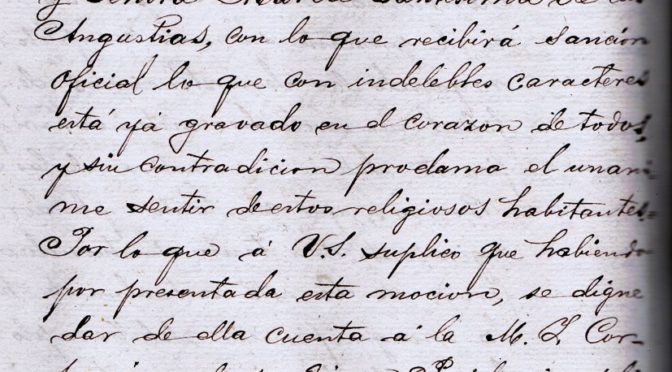 y Señora María Santísima de las
Angustias, con lo que recibirá sanción
oficial lo que con indelebles caracteres
está yá gravado en el corazon de todos,
y sin contradicion proclama el unani-
me sentir de estos religiosos habitantes.=
Por lo que á V.S. suplico que habiendo
por presentada esta mocion, se digne
dar de ella cuenta á la M. I. Cor-